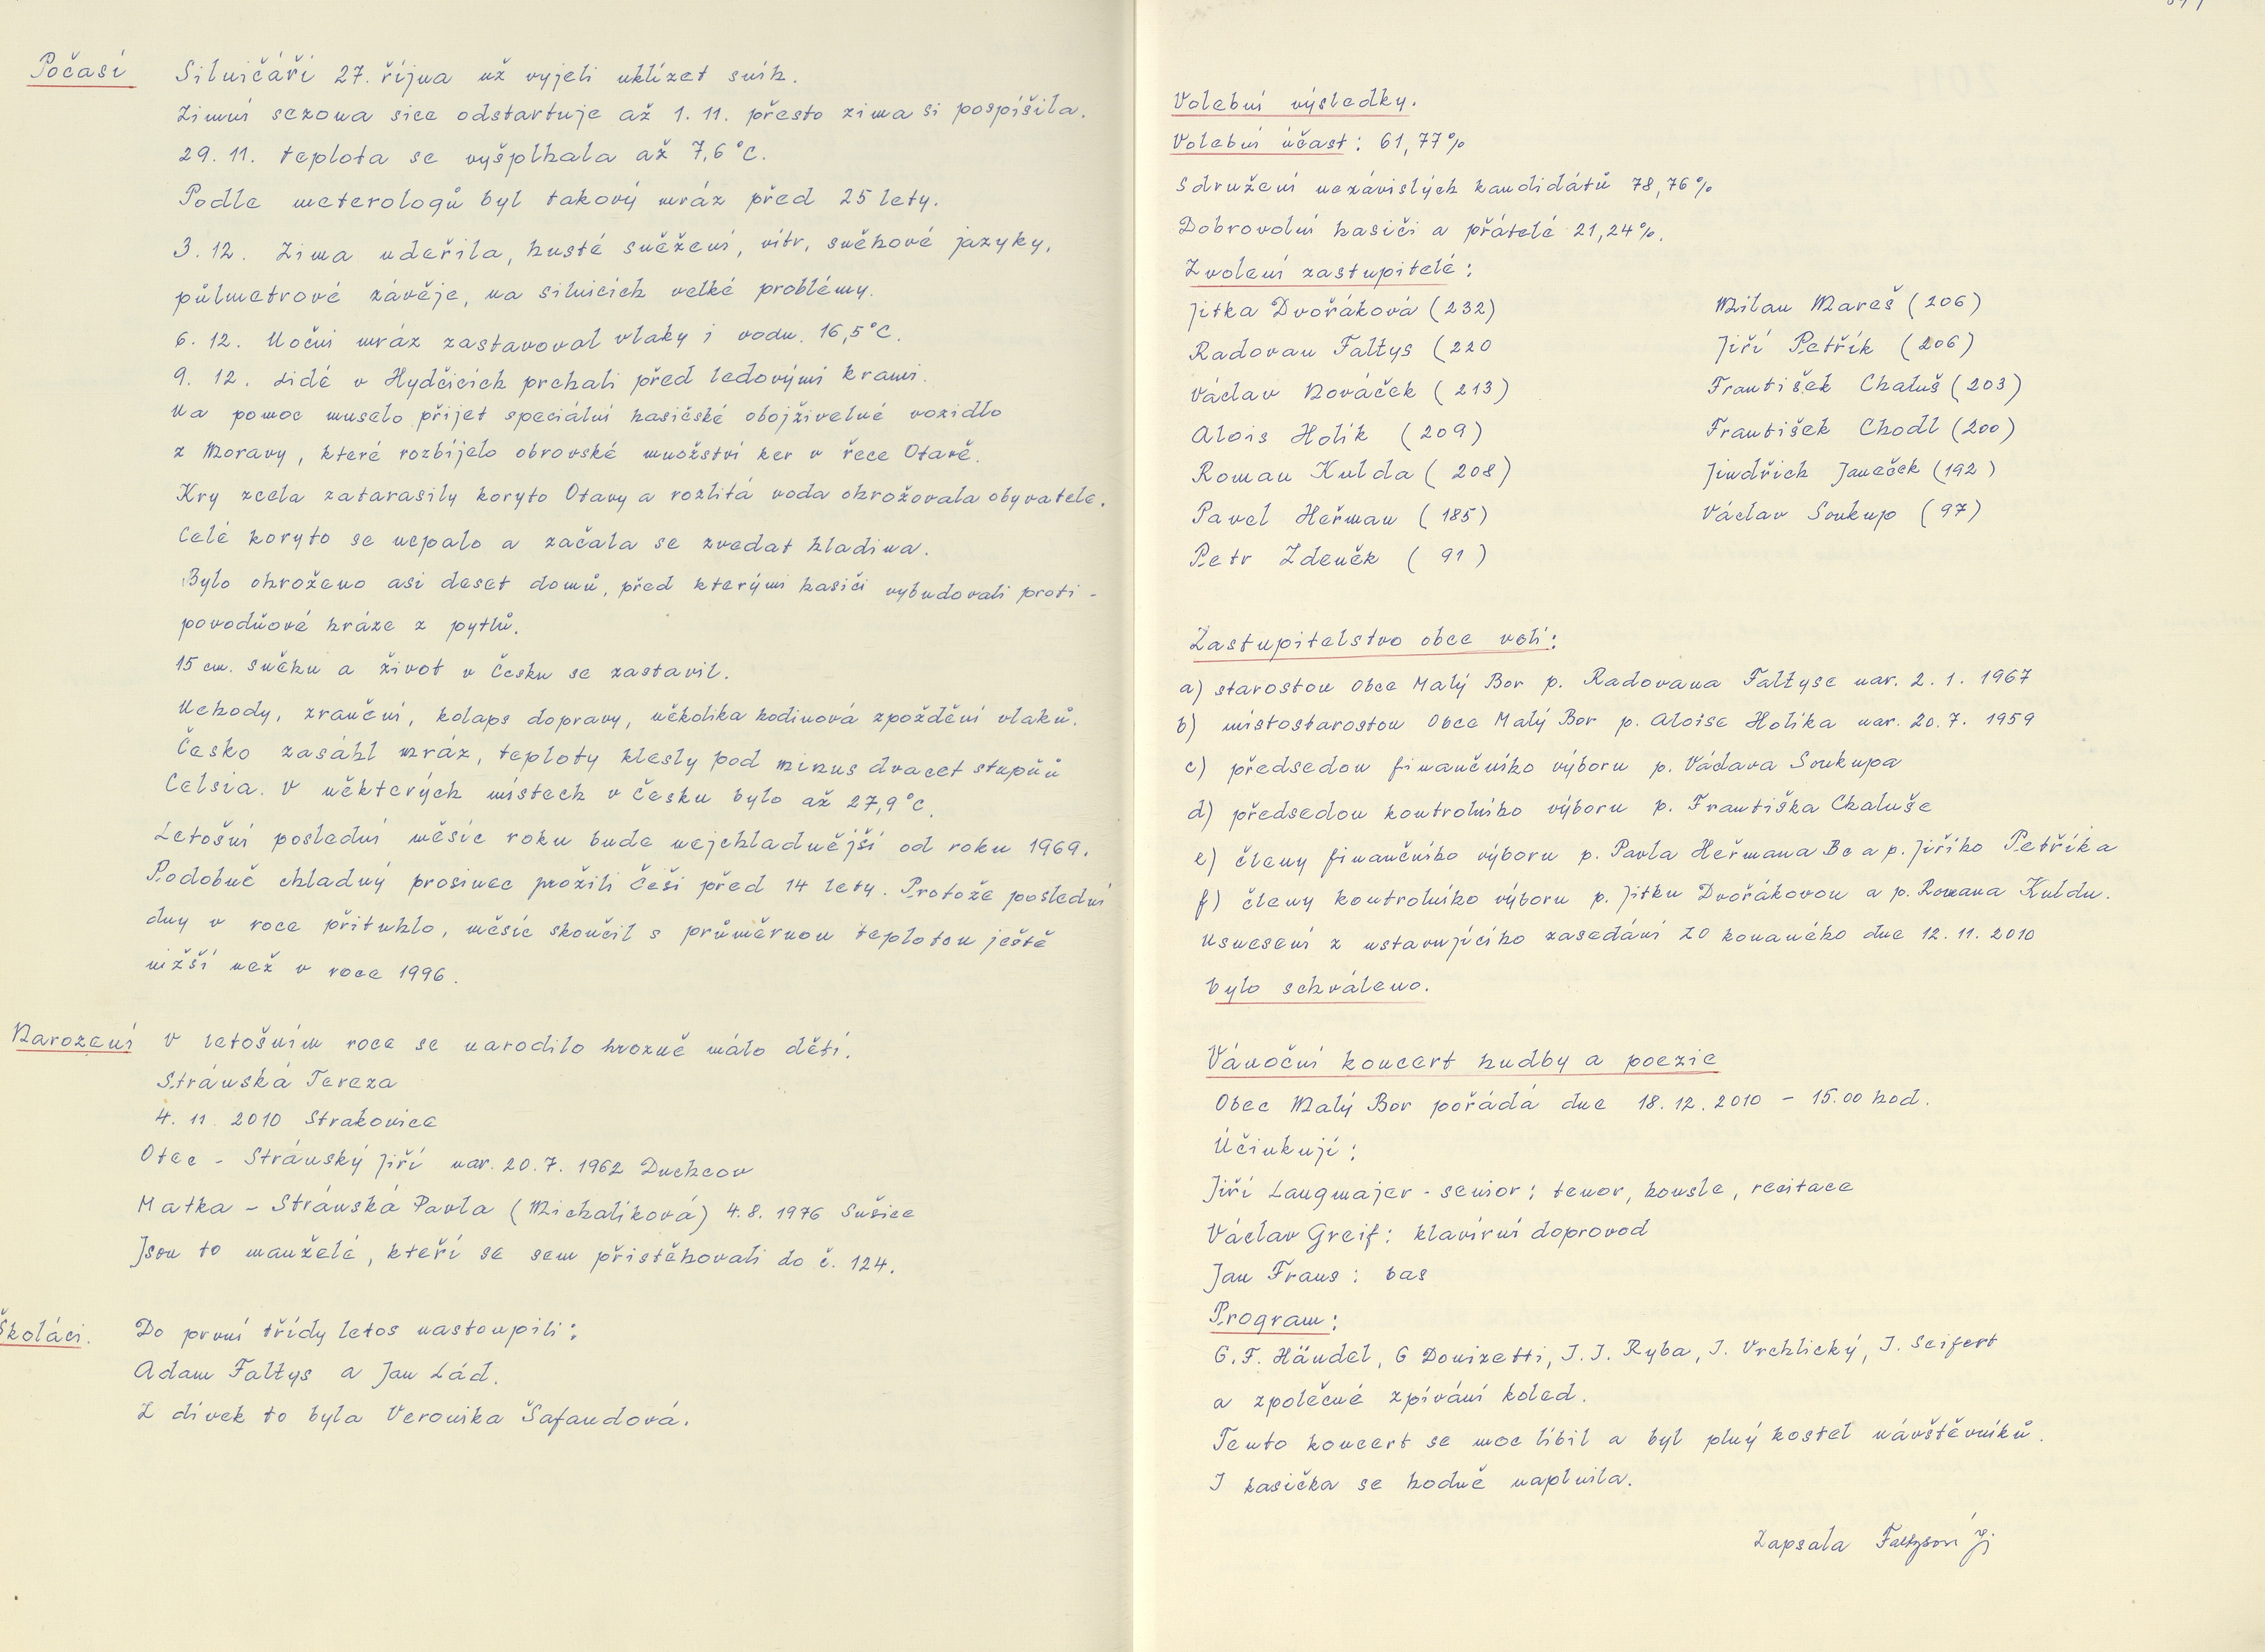 Počasí
Silničáři 27. října už vyjeli uklízet sníh.
Zimní sezona sice odstartuje až 1. 11. přesto zima si pospíšila.
29. 11. teplota se vyšplhala až 7,6 °C.
Podle meterologů byl takový mráz před 25 lety.
3. 12. Zima udeřila, husté sněžení, vítr, sněhové jazyky,
půlmetrové závěje, na silnicích velké problémy.
6. 12. Noční mráz zastavoval vlaky i vodu. 16,5 °C.
9. 12. Lidé v Hydčicích prchali před ledovými krami.
Na pomoc muselo přijet speciální hasičské obojživelné vozidlo
z Moravy, které rozbíjelo obrovské množství ker v řece Otavě.
Kry zcela zatarasily koryto Otavy a rozlitá voda ohrožovala obyvatele.
Celé koryto se ucpalo a začala se zvedat hladina.
Bylo ohroženo asi deset domů, před kterými hasiči vybudovali proti -
povodňové hráze z pytlů.
15 cm. sněhu a život v Česku se zastavil.
Nehody, zranění, kolaps dopravy, několika hodinová zpoždění vlaků.
Česko zasáhl mráz, teploty klesly pod minus dvacet stupňů
Celsia. V některých místech v Česku bylo až 27,9 °C.
Letošní poslední měsíc roku bude nejchladnější od roku 1969.
Podobně chladný prosinec prožili Češi před 14 lety. Protože poslední
dny v roce přituhlo, měsíc skončil s průměrnou teplotou ještě
nižší než v roce 1996.
Narození
V letošním roce se narodilo hrozně málo dětí.
Stránská Tereza
4. 11. 2010 Strakonice
Otec - Stránský Jiří nar. 20. 7. 1962 Duchcov
Matka - Stránská Pavla (Michalíková) 4. 8. 1976 Sušice
Jsou to manželé, kteří se sem přistěhovali do č. 124.
Školáci.
Do první třídy letos nastoupili:
Adam Faltys a Jan Lád.
Z dívek to byla Veronika Šafandová.
Volební výsledky.
Volební účast: 61,77%
Sdružení nezávislých kandidátů 78,76%
Dobrovolní hasiči a přátelé 21,24%.
Zvolení zastupitelé:
Jitka Dvořáková (232) Milan Mareš (206)
Radovan Faltys (220 Jiří Petřík (206)
Václav Nováček (213) František Chaluš (203)
Alois Holík (209) František Chodl (200)
Roman Kulda (208) Jindřich Janeček (192)
Pavel Heřman (185) Václav Soukup (97)
Petr Zdeněk (91)
Zastupitelstvo obce volí:
a) starostou Obce Malý Bor p. Radovana Faltyse nar. 2. 1. 1967
b) místostarostou Obce Malý Bor p. Aloise Holíka nar. 20. 7. 1959
c) předsedou finančního výboru p. Václava Soukupa
d) předsedou kontrolního výboru p. Františka Chaluše
e) členy finančního výboru p. Pavla Heřmana Bc a p. Jiřího Petříka
f) členy kontrolního výboru p. Jitku Dvořákovou a p. Romana Kuldu.
Usnesení z ustavujícího zasedání ZO konaného dne 12. 11. 2010
bylo schváleno.
Vánoční koncert hudby a poezie
Obec Malý Bor pořádá dne 18. 12. 2010 - 15.00 hod.
Účinkují:
Jiří Langmajer - senior: tenor, housle, recitace
Václav Greif: klavírní doprovod
Jan Fraus: bas
Program:
G. F. Händel, G Donizetti, J. J. Ryba, J. Vrchlický, J. Seifert
a zpolečné zpívání koled.
Tento koncert se moc líbil a byl plný kostel návštěvníků.
I kasička se hodně naplnila.
Zapsala Faltysová